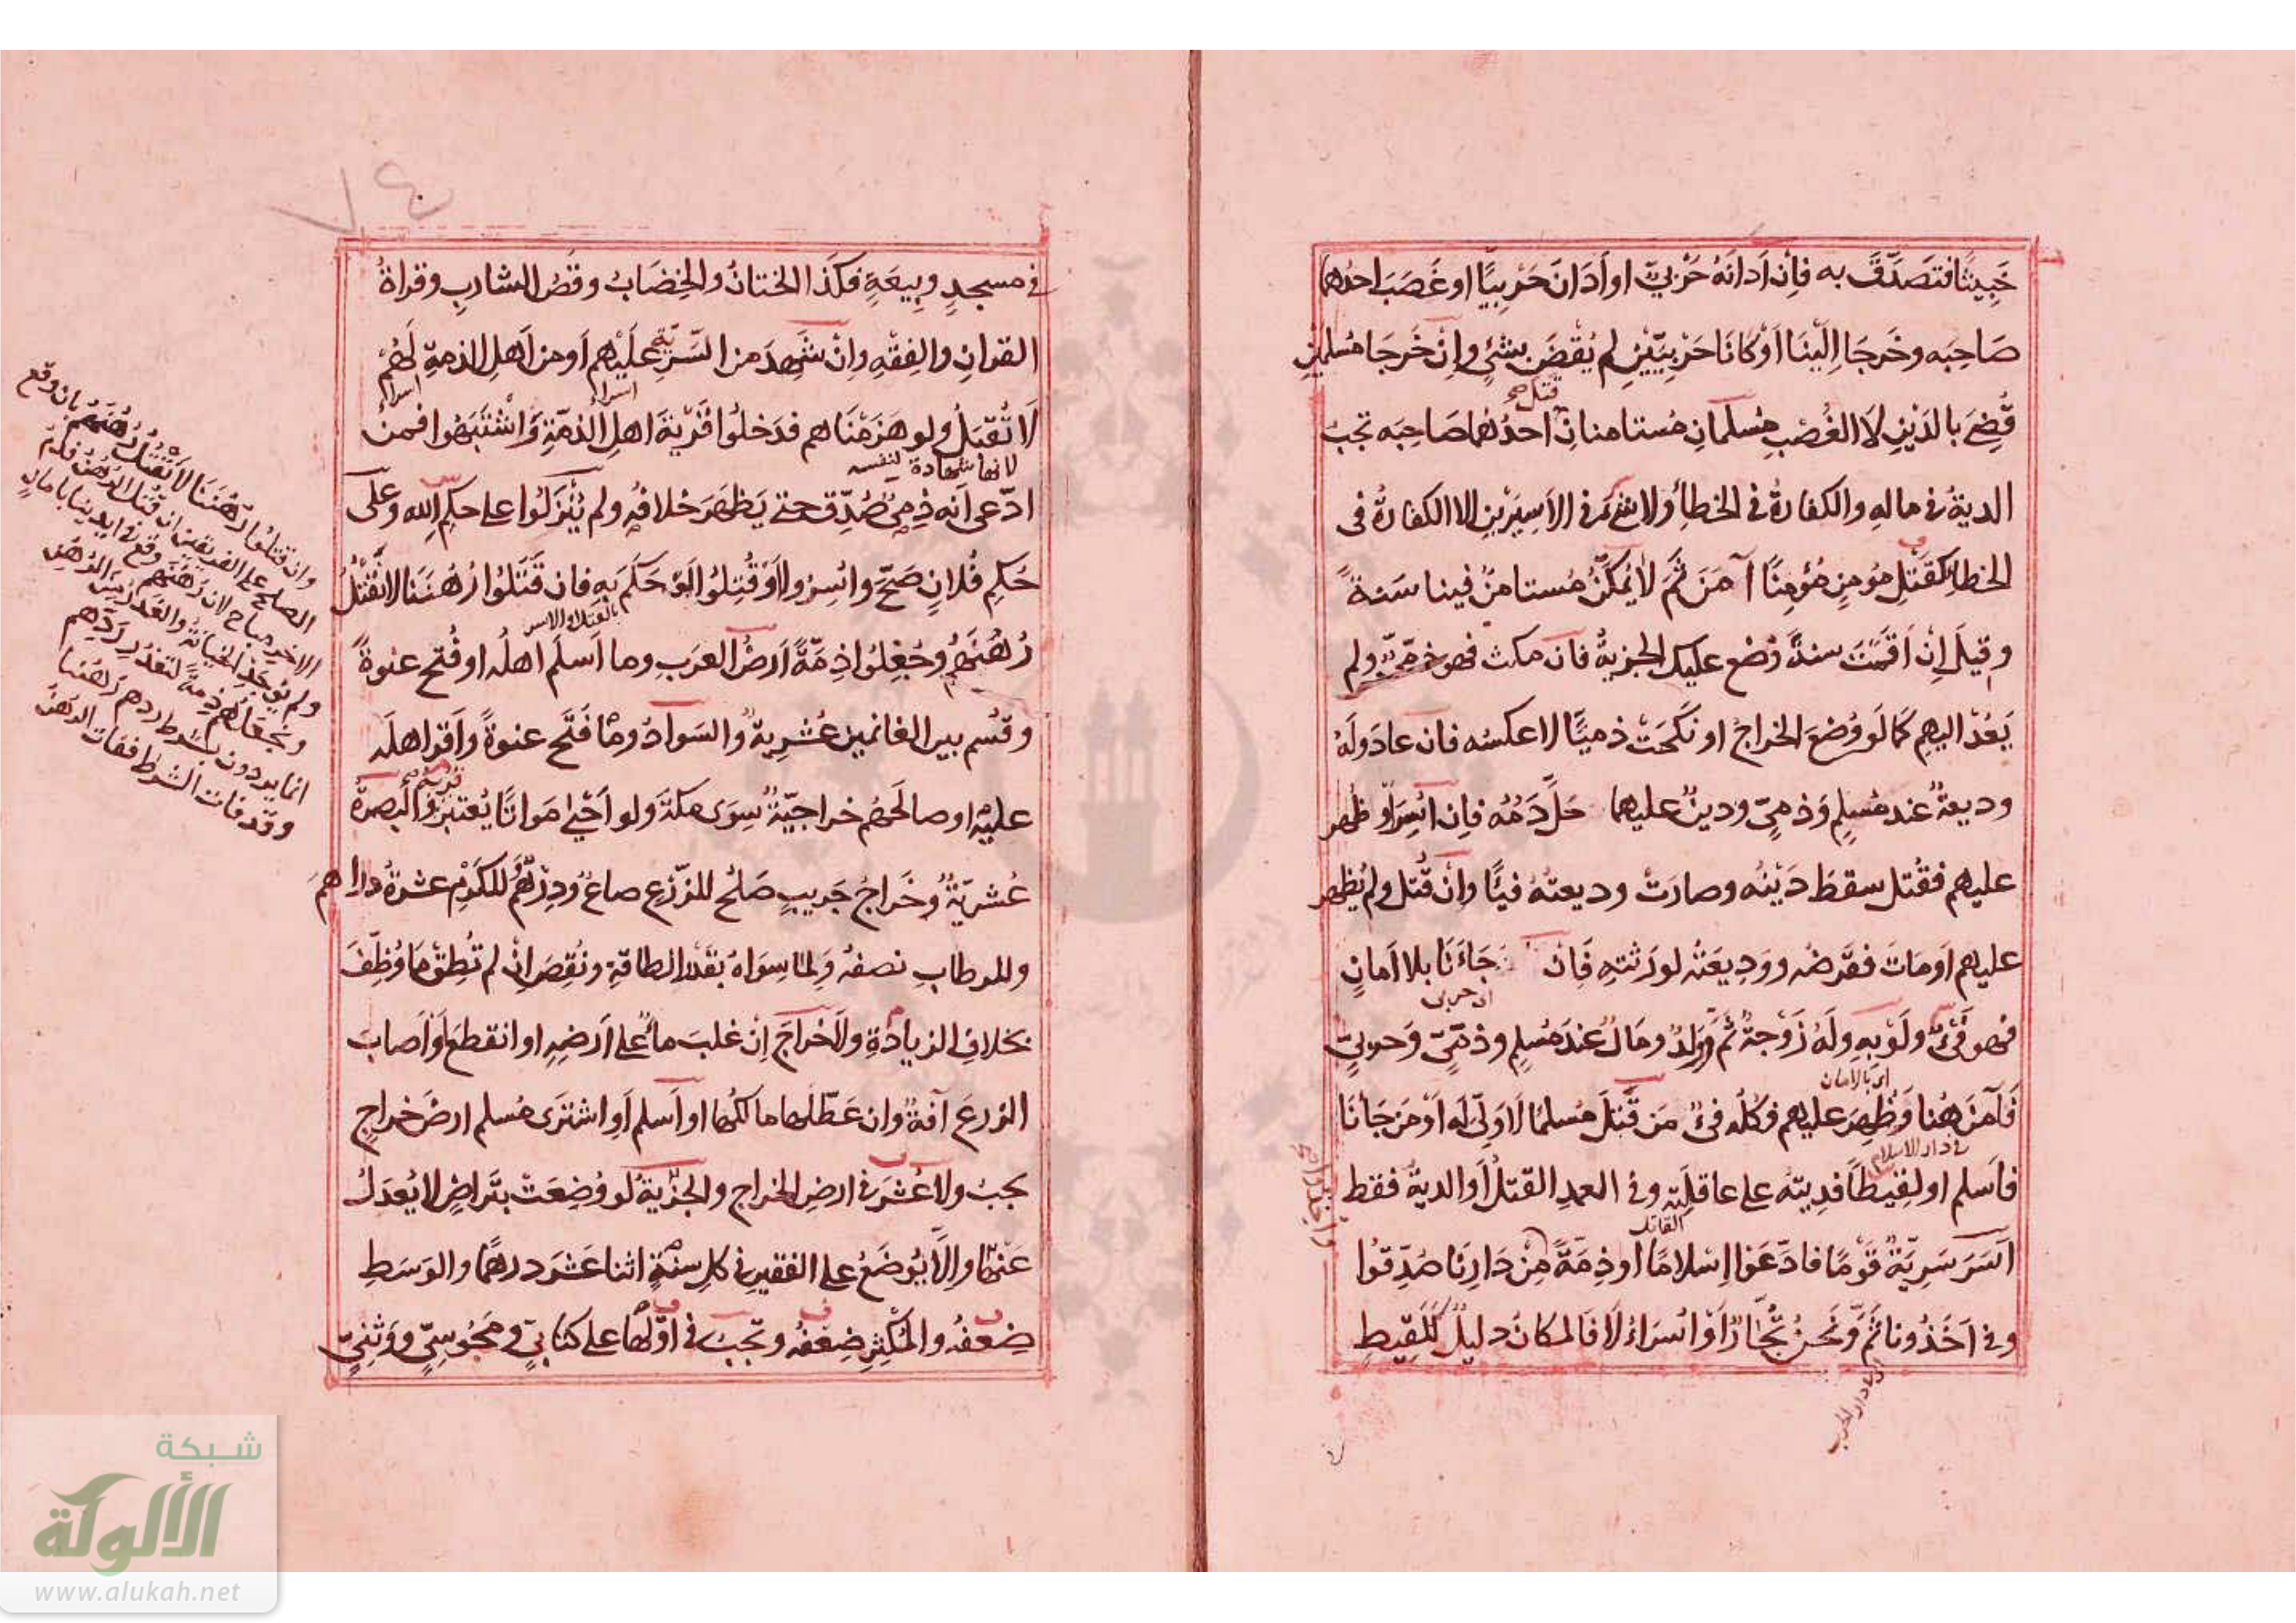 خَبِيثًا فتَصَدَّقَ به فإن اَدانَهُ حَرْبيّ او اَدَانَ حَرْبِيًّا او غَصَبَ احدُهما
صَاحِبَه وخَرجَا اِلَيْنَا اَوْ كانَا حَرْبيَّيْنِ لم يُقْضَ بشئٍ وإنْ خَرجَا مُسلمَيْنِ
قُضِيَ بالدَيْنِ لا الغُصْبِ مُسلمانِ مُستامنانِ قتل احدُهُما صَاحِبَه تجبُ
الديةُ في مالهِ والكفارةُ في الخطأِ ولا شئ في الاَسِيَرْينِ الا الكفارةُ في
الخطأِ كقَتْلِ مُؤمنٍ مُؤمِنًا آمَنَ ثَمَّ لا يُمَكَّنُ مُستامنٌ فينا سَنةً
وقيلَ اِنْ اَقَمْتَ سنةً وُضع عليك الجزيةُ فان مكث فهو ذمّيّ ولم
يَعُدْ اليهم كما لَو وُضعَ الخراجُ او نكَحَتْ ذميًّا لا عكسُه فان عادَ ولَهُ
وديعةٌ عند مُسلمٍ وَذمّيٍ ودينٌ عليهما حَلَّ دَمُه فإن اُسِرَ او ظُهِر
عليهم فقُتل سقطَ دَيْنُه وصارَتْ وديعتُهُ فيئًا وانْ قُتل ولم يُظهر
عليهم اَو مَاتَ فقَرْضُه وودِيعَتُه لورَثتهِ فَان جَاءَنَا بلا اَمانٍ
اى حربى
فهو فَىْءٌ ولَوْ بِهِ ولَهُ زَوْجةٌ ثَمَّ ووَلدٌ ومَالٌ عندَ مُسلمٍ وذمّيّ وَحربيّ
اى بالامان
فَآمنَ هُنا وَظُهِرَ عليهم فكلّه فئٌ مَن قَتلَ مُسلمًا لَا وَلِيَّ لَه اَوْ مَن جَاءنَا
في دار الاسلام
فاَسلم او لقِيطًا فدِيته على عاقلَتِه وفي العمدِ القتلُ اَو الديةُ فقط
القاتل
اَسَرَ سَرِيّةٌ قَوْمًا فادّعَوا اِسْلامًا او ذِمّةً مِنْ دَارِنَا صُدِّقوا
وفي اَخَذُونا ثَمَّ ونَحنُ تُجَّارٌ اَوْ اُسَرَاءُ لَا فالمكانُ دليلٌ كَلَقِيطٍ
اى دار الحرب
في مسجدٍ وبِيعَةٍ فكذَا الختانُ والخِضَابُ وقَصُّ الشاربِ وقراةُ
القرانِ والفِقْهِ وانْ شَهِدَ من السَّرِيّةِ علَيْهم اَو من اَهلِ الذمةِ لَهُمْ
اسراء
لَا تُقبَلُ ولو هَزَمْنَاهم فدَخلُوا قَرْيَةَ اهلِ الذمّةِ وَاشْتَبَهُوا فمن
لانها شهادة لنفسه
ادّعى اَنه ذمّيٌ صُدِّق حتى يَظهَرَ خلافُه ولم يُنْزَلُوا على حكمِ الله وعَلى
حُكمِ فُلانٍ صَحَّ واُسِرُوا اَوْ قُتِلُوا لَوْ حَكَمَ بهِ فان قَتَلُوا رُهُنَنَا لا نَقْتُلُ
بالقتل او الاسر
رُهُنَهُمْ وجُعِلُوا ذِمّةً اَرضُ العرَبِ وما اَسلَم اَهلُه او فُتح عنوةً
وقُسم بين الغانمين عُشرِيةٌ والسَوادُ وما فُتَح عنوةً وَاُقرَ اهلَه
عليهْ او صالَحَهُم خراجيّةٌ سِوَى مكةَ ولو اَحْيَى مَواتًا يُعتبَرُ قربُه والبصرةُ
عُشريّةٌ وخَراجُ جَريبٍ صَلحُ للزّرْعِ صاعٌ ودِرْهَمٌ وللكَرْمِ عشرةُ دراهمَ
وللرطابِ نصفُه وَلما سِوَاهُ بقَدْرِ الطاقةِ ونُقِصَ اِنْ لم تُطِقْ ما وُظِّفَ
بخلافِ الزيادةِ ولَا خَراجَ اِنْ غلبَ ماءٌ على اَرضِهِ او انقطعَ اَو اَصابَ
الزرعَ آفةٌ وان عَطّلَها مالكُها او اَسلم اَو اشترَى مُسلم ارضَ خراجٍ
يجبُ ولا عُشرَ في ارضِ الخراجِ والجزْيةُ لَو وُضِعَتْ بتَراضٍ لا يُعدَلُ
عَنْها واِلَّا يُوضَعُ على الفقيرِ في كلِ سنَةٍ اثنا عَشَر درهمًا والوَسَطِ
ضِعفُه والمُكْثِرِ ضِعْفُه وتجبُ في اوَّلِها على كتابيّ ومَجُوسِيّ ووَثنِيّ
وان قتلُوا رُهُنَنَا لا نَقْتُلُ رُهُنَهم بان وقع
الصلح على الفريقين ان قتل الرهن فلدم
الاخر مباح لان رهنهم وقع في ايدينا بامان
ولم يوجد الخيانة والغدر من الرهن
ونجعلهم ذمة لتعذر ردهم
انما يردون بشرط ردهم رهننا
وقد فات الشرط ففات الرهن
شبكة
الألوكة
www.alukah.net